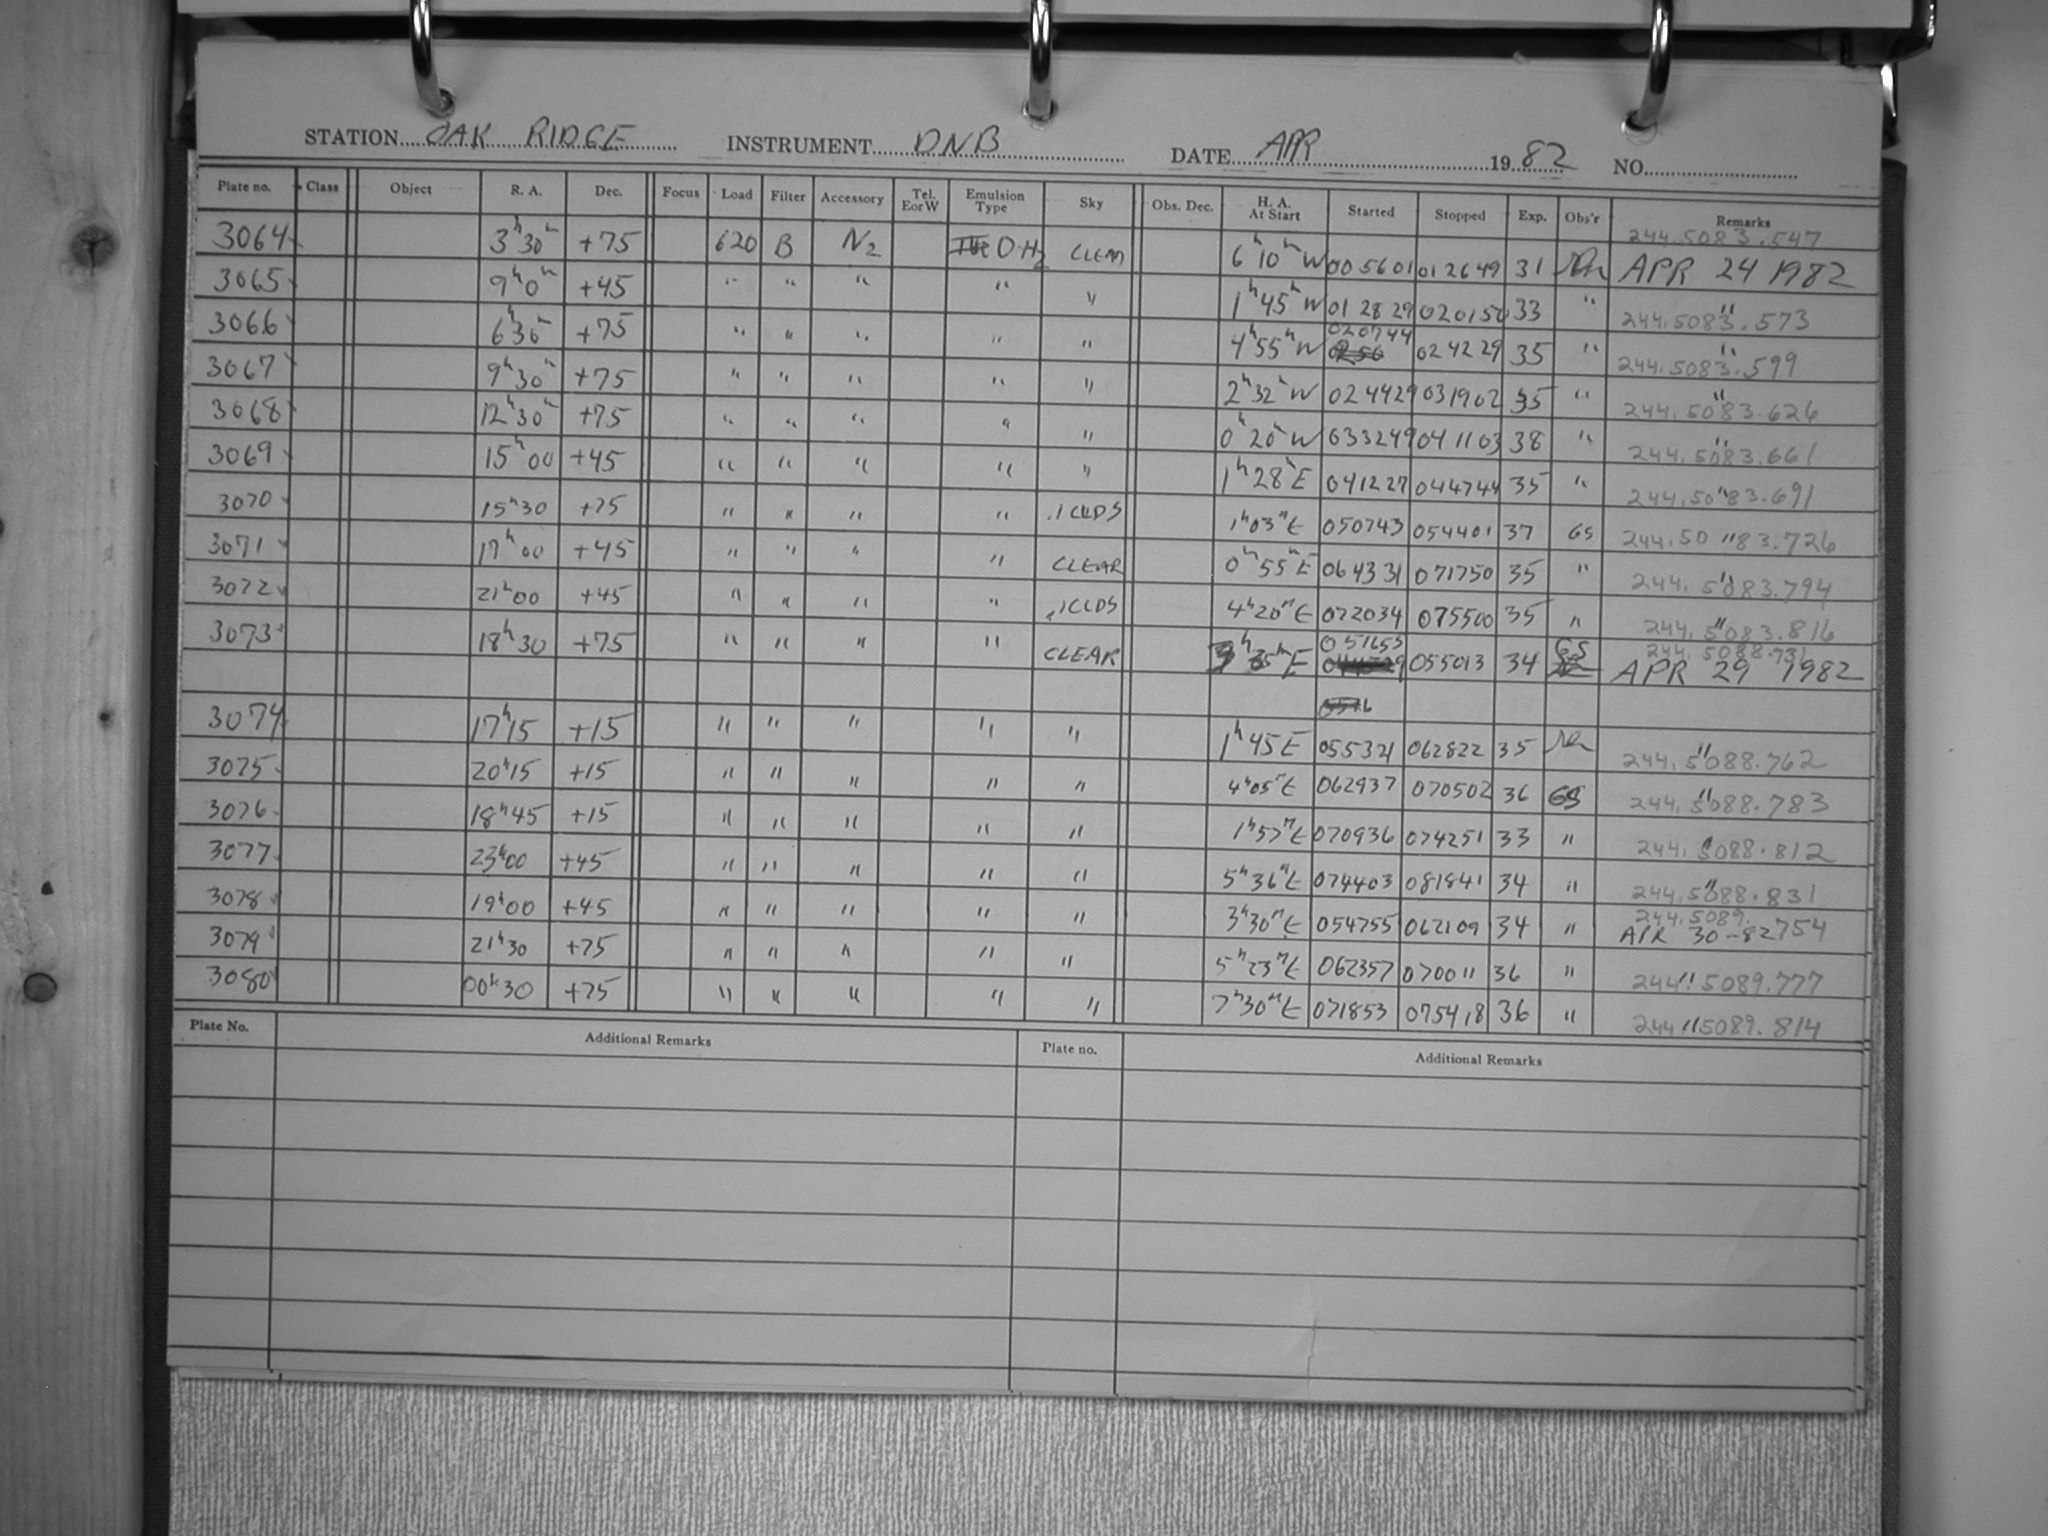 STATION OAK RIDGE INSTRUMENT DNB DATE APR 1982 NO.
Plate no. Class Object R. A. Dec. Focus Load Filter Accessory Tel. E or W Emulsion Type Sky Obs. Dec. H. A. At Start Started Stopped Exp. Obs'r Remarks
3064 3h30m +75 620 B N2 O-H2 CLEAR 6h10mW 005601 012649 31 244.5083.547 APR 24 1982
3065 9h0m +45 " " " " " 1h45mW 012829 020150 33 " " 244.5083.573
3066 6h30m +75 " " " " " 4h55mW 020744 024229 35 " " 244.5083.599
3067 9h30m +75 " " " " " 2h32mW 024429 031902 35 " " 244.5083.626
3068 12h30m +75 " " " " " 0h20mW 033249 041103 38 " " 244.5083.661
3069 15h00 +45 " " " " " 1h28mE 041227 044744 35 " " 244.5083.691
3070 15h30 +75 " " " " .1CLDS 1h03mE 050743 054401 37 GS " 244.5083.726
3071 17h00 +45 " " " " CLEAR 0h55mE 064331 071750 35 " " 244.5083.794
3072 21h00 +45 " " " " .1CLDS 4h20mE 072034 075500 35 " " 244.5083.816
3073 18h30 +75 " " " " CLEAR 3h35mE 051655 055013 34 GS 244.5088.731 APR 29 1982
3074 17h15 +15 " " " " " 1h45E 055321 062822 35 " 244.5088.762
3075 20h15 +15 " " " " " 4h05mE 062937 070502 36 GS " 244.5088.783
3076 18h45 +15 " " " " " 1h57mE 070936 074251 33 " 244.5088.812
3077 23h00 +45 " " " " " 5h36mE 074403 081841 34 " " 244.5088.831
3078 19h00 +45 " " " " " 3h30mE 054755 062109 34 " 244.5089.754 APR 30-82
3079 21h30 +75 " " " " " 5h23mE 062357 070011 36 " " 244.5089.777
3080 00h30 +75 " " " " " 7h30mE 071853 075418 36 " " 244.5089.814
Plate No. Additional Remarks Plate no. Additional Remarks